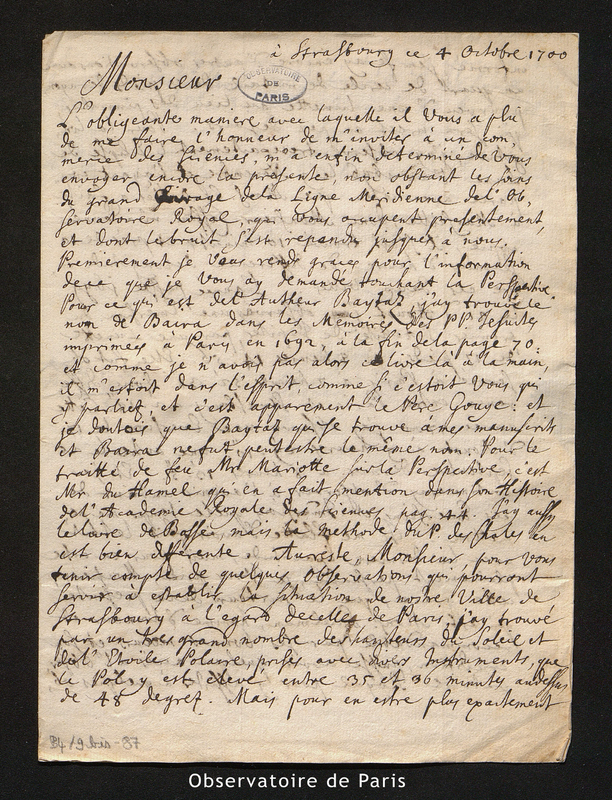 à Strasbourg ce 4 Octobre 1700
Monsieur
OBSERVATOIRE
DE
PARIS
L'obligeante maniere avec laquelle il Vous a plu
de me faire l'honneur de m'inviter à un com,
merce des sciences, m'a enfin determiné de vous
envoyer encore la presente, non obstant les soins
du grand ouvrage de la Ligne Meridienne del'Ob,
servatoire Royal, qui Vous occupent presentement,
et dont le bruit s'est repandu jusques à nous.
Premierement je Vous rends graces pour l'information
de ce que je Vous ay demandé touchant la Perspective.
Pour ce qui est del'Autheur Baytaz, j'ay trouvé le
nom de Baira dans les Memoires des PP Jesuites
imprimées à Paris en 1692, à la fin de la page 70:
et comme je n'avois pas alors ce livre là à la main,
il m'estoit dans l'esprit, comme si c'estoit Vous qui
y parliez, et c'est apparement le Pere Gouye: et
je doutois que Baytaz qui se trouve à mes manuscrits
et Baira ne fut peutestre le même nom. Pour le
traitté de feu Mr Mariotte sur la Perspective, c'est
Mr du Hamel qui en a fait mention dans son Histoire
del'Academie Royale des sciences pag. 44. J'ay aussi
le livre de Bosse, mais la methode du P. des Chales en
est bien differente. Au reste, Monsieur, pour Vous
tenir compte de quelques Observations qui pourront
servir à establir la situation de nostre Ville de
Strasbourg à l'egard de celle de Paris; j'ay trouvé
par un tres grand nombre de hauteurs du Soleil et
del'Etoile Polaire, prises avec divers Instruments, que
le Pol y est elevé entre 35 et 36 minutes au dessus
de 48 degrez. Mais pour en estre plus exactement
B4/9 bis-87
Observatoire de Paris